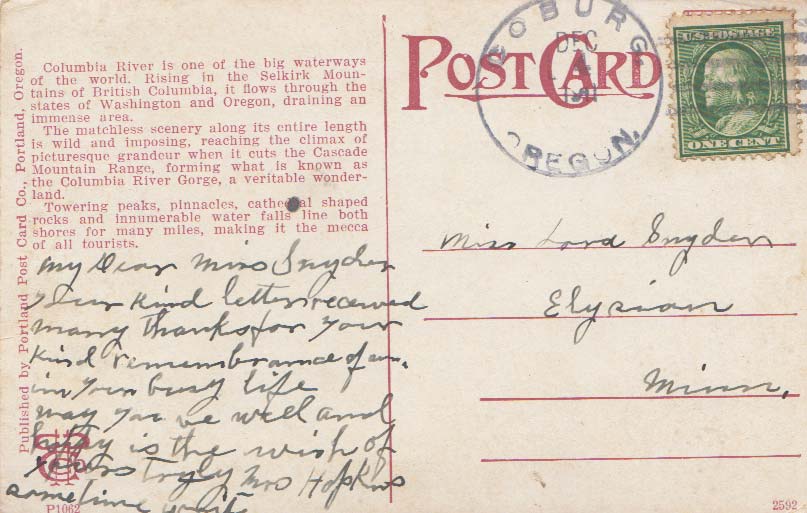 Columbia River is one of the big waterways
of the world. Rising in the Selkirk Moun-
tains of British Columbia, it flows through the
states of Washington and Oregon, draining an
immense area.
The matchless scenery along its entire length
is wild and imposing, reaching the climax of
picturesque grandeur when it cuts the Cascade
Mountain Range, forming what is known as
the Columbia River Gorge, a veritable wonder-
land.
Towering peaks, pinnacles, cathedral shaped
rocks and innumerable water falls line both
shores for many miles, making it the mecca
of all tourists.
My Dear Miss Snyder
Your kind letter received
many thanks for your
kind remembrance of
in your busy life
may you be well and
happy is the wish of
yours truly Mrs Hopkins
sometime
P1062
Published by Portland Post Card Co., Portland, Oregon.
POST CARD
COBURG,
DEC
4
OREGON.
U.S. POSTAGE
ONE CENT
Miss Snyder
Elysian
Minn,
2592